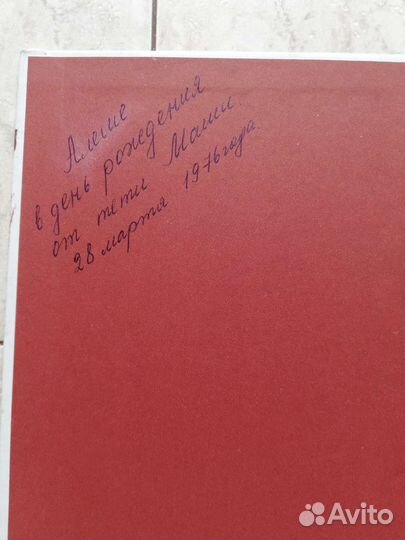 Алёше
в день рождения
от тети Маши.
28 марта 1976 года.
Avito